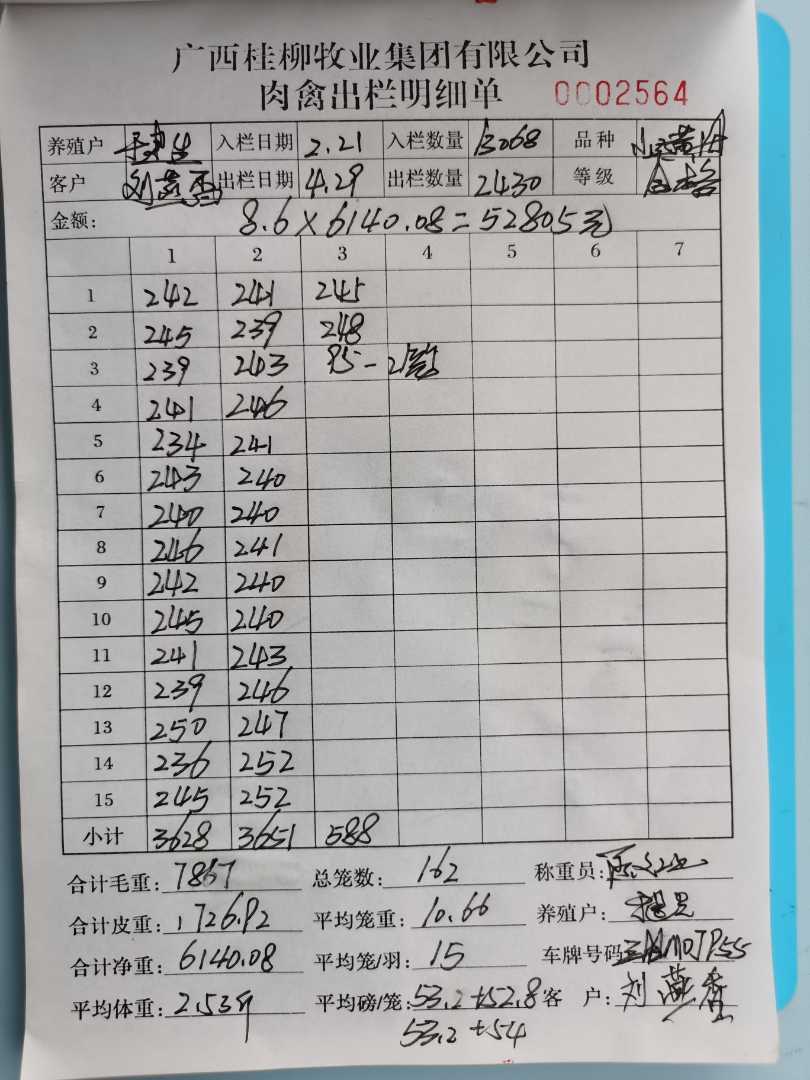 广西桂柳牧业集团有限公司
肉禽出栏明细单 0002564
养殖户 入栏日期 2.21 入栏数量 13068 品种
客户 刘燕香 出栏日期 4.29 出栏数量 2430 等级 合格
金额: 8.6×6140.08=52805元
1 2 3 4 5 6 7
1 242 241 245
2 245 239 248
3 239 243 95-2笼
4 241 246
5 234 241
6 243 240
7 240 240
8 246 241
9 242 240
10 245 240
11 241 243
12 239 246
13 250 247
14 236 252
15 245 252
小计 3628 3651 588
合计毛重: 7867 总笼数: 162 称重员:
合计皮重: 1726.92 平均笼重: 10.66 养殖户:
合计净重: 6140.08 平均笼/羽: 15 车牌号码
平均体重: 2.53斤 平均磅/笼: 53.2+52.8 客 户: 刘燕香
53.2+54